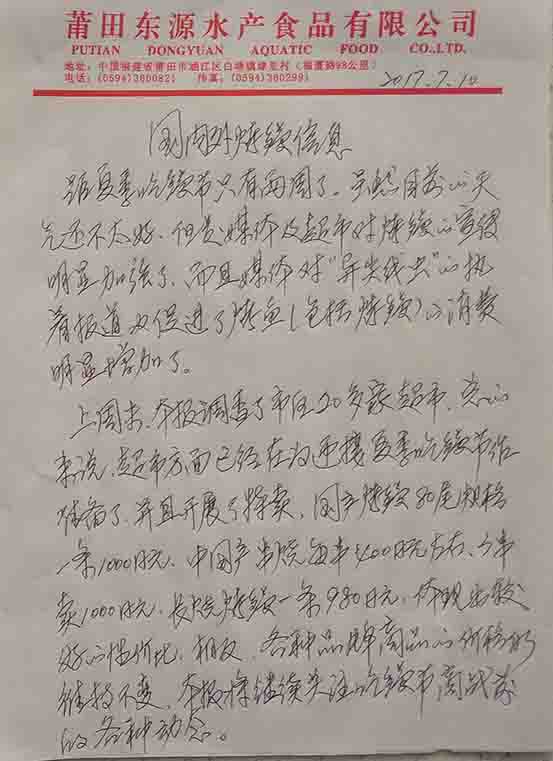 莆田东源水产食品有限公司
PUTIAN DONGYUAN AQUATIC FOOD CO.,LTD.
地址：中国福建省莆田市涵江区白塘镇埭里村（福厦路98公里）
电话：(0594)3600821 传真：(0594)3602993
2017.7.10
国内外烤鳗信息
距夏季吃鳗节只有两周了。虽然目前的天
气还不太好，但是媒体及超市对烤鳗的宣传
明显加强了，而且媒体对“异尖线虫”的执
着报道也促进了烤鱼（包括烤鳗）的消费
明显增加了。
上周末，本报调查了市住20多家超市，总的
来说，超市方面已经在为迎接夏季吃鳗节作
准备了，并且开展了特卖，国产烤鳗80尾规格
一条1000日元，中国产串烧每串400日元左右，3串
卖1000日元，长烧烤鳗一条980日元，体现出较
好的性价比，相反，各种品牌商品的价格仍
维持不变，本报将继续关注吃鳗节商战前
的各种动态。